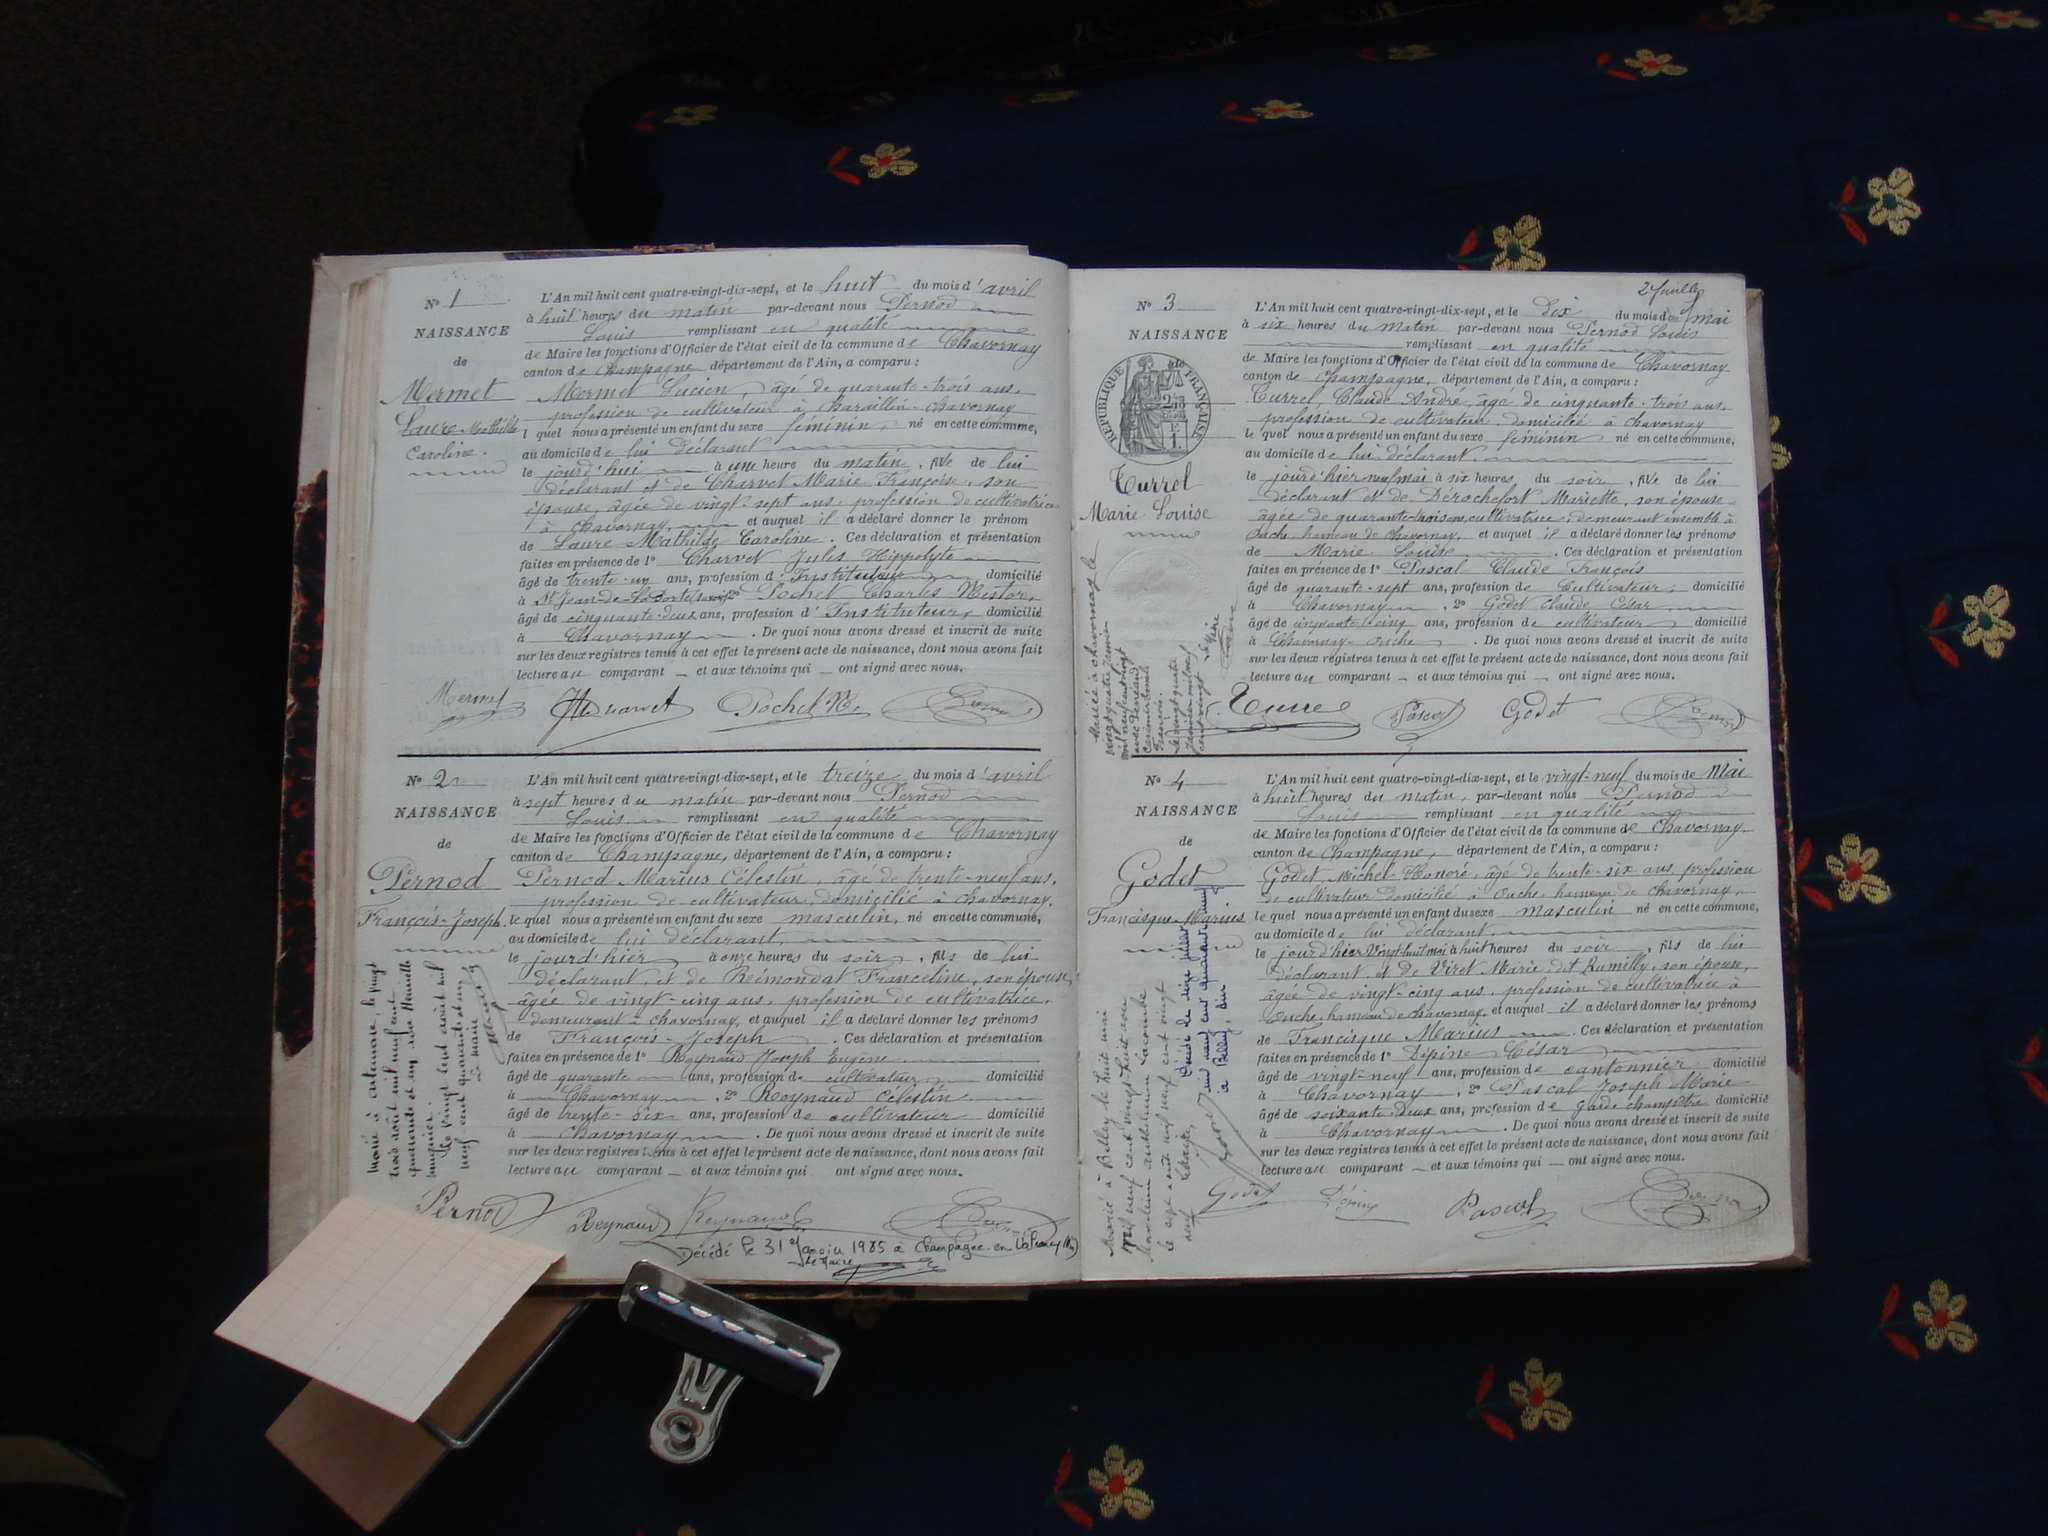 N° 1
NAISSANCE
de
Mermet
Laure Mathilde
Caroline.
L'An mil huit cent quatre-vingt-dix-sept, et le huit du mois d'avril
à huit heures du matin par-devant nous Pernod
Louis remplissant en qualité
de Maire les fonctions d'Officier de l'état civil de la commune de Chavornay
canton de Champagne, département de l'Ain, a comparu :
Mermet Lucien, âgé de quarante-trois ans,
profession de cultivateur à Charaillin-Chavornay
l quel nous a présenté un enfant du sexe féminin, né en cette commune,
au domicile de lui déclarant
le jourd'hui à une heure du matin, fille de lui
déclarant et de Charvet Marie Françoise, son
épouse, âgée de vingt-sept ans, profession de cultivatrice
à Chavornay, et auquel il a déclaré donner le prénom
de Laure Mathilde Caroline. Ces déclaration et présentation
faites en présence de 1° Charvet Jules Hippolyte
âgé de trente-un ans, profession d'Instituteur, domicilié
à St Jean-de- 2° Pochet Charles Nestor,
âgé de cinquante-deux ans, profession d'Instituteur, domicilié
à Chavornay. De quoi nous avons dressé et inscrit de suite
sur les deux registres tenus à cet effet le présent acte de naissance, dont nous avons fait
lecture au comparant — et aux témoins qui — ont signé avec nous.
Mermet Pochet N.
N° 2
NAISSANCE
de
Pernod
François-Joseph
L'An mil huit cent quatre-vingt-dix-sept, et le treize du mois d'avril
à sept heures du matin par-devant nous Pernod
Louis remplissant en qualité
de Maire les fonctions d'Officier de l'état civil de la commune de Chavornay
canton de Champagne, département de l'Ain, a comparu :
Pernod Marius Célestin, âgé de trente-neuf ans,
profession de cultivateur, domicilié à Chavornay,
le quel nous a présenté un enfant du sexe masculin, né en cette commune,
au domicile de lui déclarant,
le jourd'hier à onze heures du soir, fils de lui
déclarant, et de Rémondat Franceline, son épouse,
âgée de vingt-cinq ans, profession de cultivatrice,
demeurant à Chavornay, et auquel il a déclaré donner les prénoms
de François-Joseph. Ces déclaration et présentation
faites en présence de 1° Reynaud Joseph Eugène
âgé de quarante ans, profession de cultivateur, domicilié
à Chavornay, 2° Reynaud Célestin
âgé de trente-six ans, profession de cultivateur domicilié
à Chavornay. De quoi nous avons dressé et inscrit de suite
sur les deux registres tenus à cet effet le présent acte de naissance, dont nous avons fait
lecture au comparant — et aux témoins qui ont signé avec nous.
Marié à le vingt
trois août mil neuf cent
quarante et un
Le vingt trois août mil
neuf cent quarante et un
Le maire
Pernod Reynaud Reynaud C
Décédé le 31 Janvier 1985 à Champagne-en-Valromey (Ain)
Le Maire
27 Juillet
N° 3
NAISSANCE
RÉPUBLIQUE FRANÇAISE
Turrel
Marie Louise
L'An mil huit cent quatre-vingt-dix-sept, et le dix du mois de mai
à six heures du matin par-devant nous Pernod Louis
remplissant en qualité
de Maire les fonctions d'Officier de l'état civil de la commune de Chavornay
canton de Champagne, département de l'Ain, a comparu :
Turrel Claude André, âgé de cinquante-trois ans,
profession de cultivateur, domicilié à Chavornay
le quel nous a présenté un enfant du sexe féminin, né en cette commune,
au domicile de lui déclarant.
le jourd'hier neuf mai à six heures du soir, fille de lui
déclarant et de Dérochefort Mariette, son épouse
âgée de quarante-trois ans, cultivatrice, demeurant ensemble à
Ouche hameau de Chavornay, et auquel il a déclaré donner les prénoms
de Marie Louise. Ces déclaration et présentation
faites en présence de 1° Pascal Claude François
âgé de quarante-sept ans, profession de cultivateur, domicilié
à Chavornay, 2° Godet Claude César
âgé de cinquante-cinq ans, profession de cultivateur domicilié
à Chavornay-Ouche. De quoi nous avons dressé et inscrit de suite
sur les deux registres tenus à cet effet le présent acte de naissance, dont nous avons fait
lecture au comparant — et aux témoins qui — ont signé avec nous.
Mariée à Chavornay le
vingt quatre janvier
mil neuf cent vingt
Le vingt quatre
janvier mil neuf
cent vingt. Le Maire
Turrel Pascal Godet
N° 4
NAISSANCE
de
Godet
Francisque-Marius
L'An mil huit cent quatre-vingt-dix-sept, et le vingt-neuf du mois de Mai
à huit heures du matin, par-devant nous Pernod
Louis remplissant en qualité
de Maire les fonctions d'Officier de l'état civil de la commune de Chavornay
canton de Champagne, département de l'Ain, a comparu :
Godet Michel Honoré, âgé de trente-six ans profession
de cultivateur domicilié à Ouche, hameau de Chavornay,
le quel nous a présenté un enfant du sexe masculin né en cette commune,
au domicile de lui déclarant
le jourd'hier vingt-huit mai à huit heures du soir, fils de lui
déclarant et de Viret Marie dit Rumilly, son épouse,
âgée de vingt-cinq ans, profession de cultivatrice à
Ouche, hameau de Chavornay, et auquel il a déclaré donner les prénoms
de Francisque Marius. Ces déclaration et présentation
faites en présence de 1° Dépine César
âgé de vingt-neuf ans, profession de cantonnier domicilié
à Chavornay, 2° Pascal Joseph Marie
âgé de soixante-deux ans, profession de garde champêtre domicilié
à Chavornay. De quoi nous avons dressé et inscrit de suite
sur les deux registres tenus à cet effet le présent acte de naissance, dont nous avons fait
lecture au comparant — et aux témoins qui — ont signé avec nous.
Marié à Belley le huit mai
mil neuf cent vingt huit avec
Lacombe
le sept août mil neuf cent vingt
neuf
Décédé le
mil neuf cent quarante
à Belley, Ain
Godet Dépine Pascal